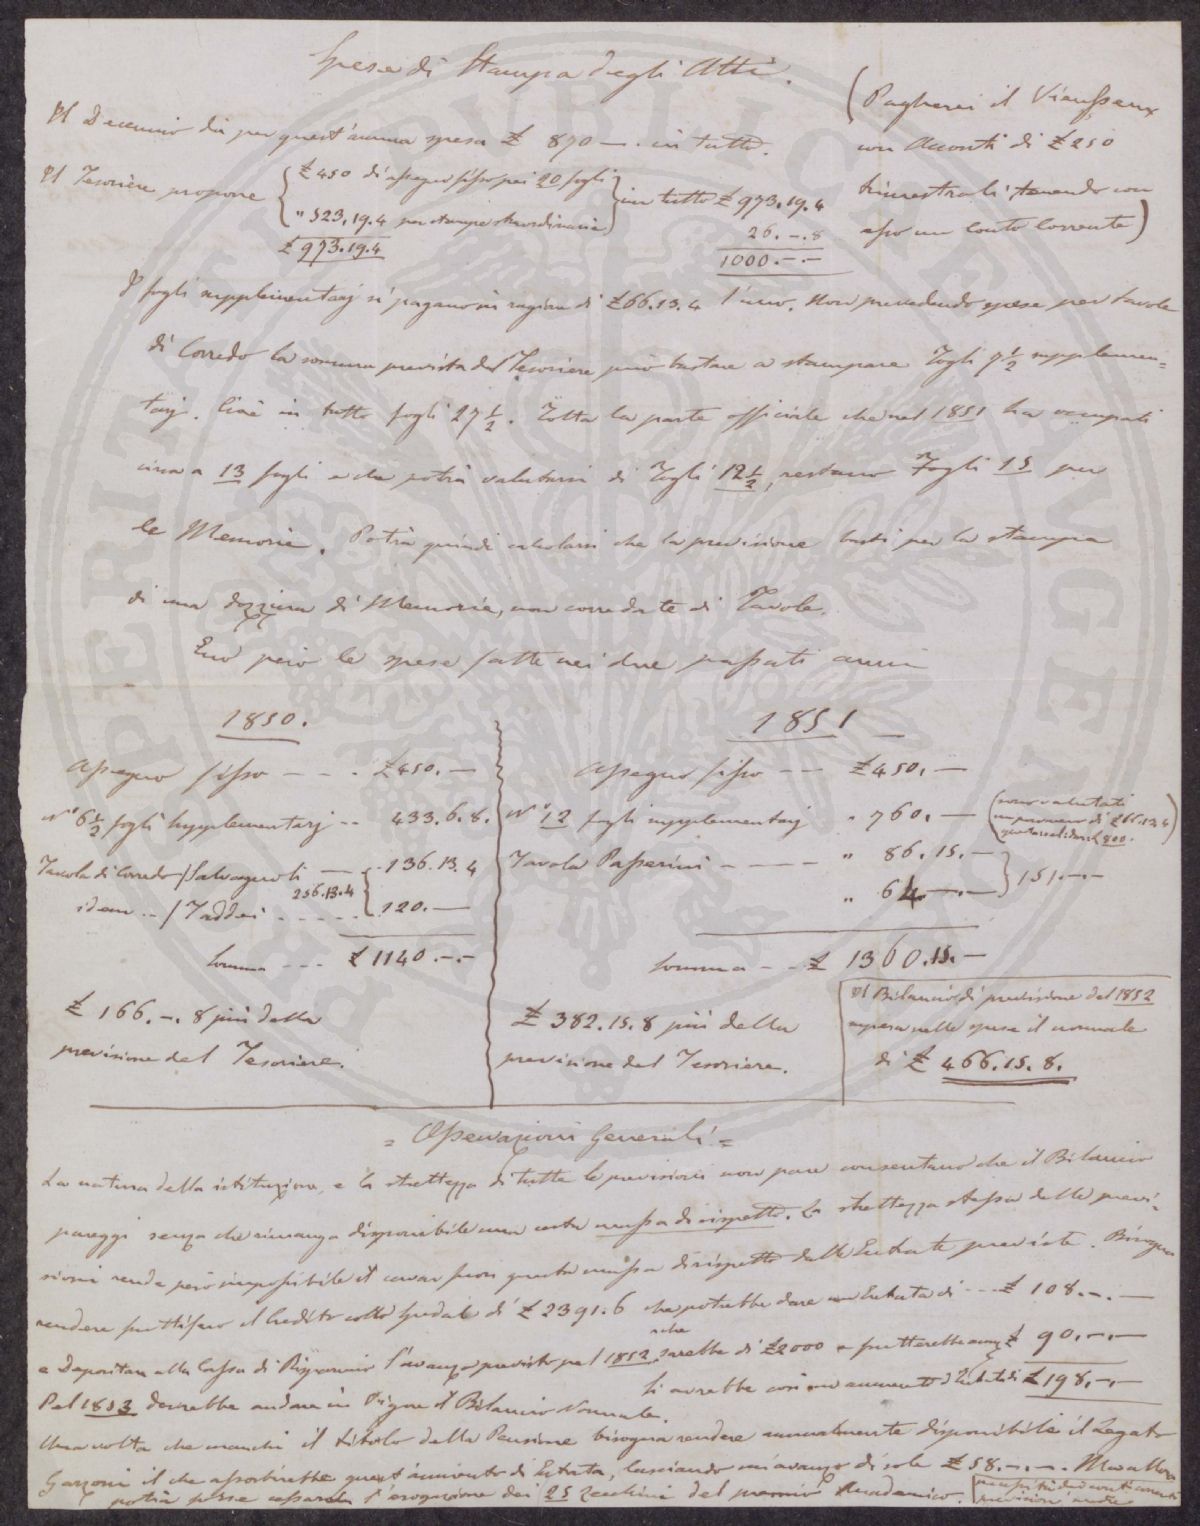 Spese di Stampa degli Atti.
(Pagherei il Vieusseux
con Acconti di £ 250
trimestrali tenendo con
esso un Conto Corrente)
Il Decennio dà per quest'anno spesa £ 870 — . in tutto.
Il Tesoriere propone { £ 450 di assegno fisso pei 20 fogli
" 523.19.4 per stampe straordinarie } in tutto £ 973.19.4
£ 973.19.4
26.-.8
1000.-.-
I fogli supplementarj si pagano in ragione di £ 66.13.4 l'uno. Non prevedendo spese per tavole
di Corredo la somma prevista dal Tesoriere può bastare a stampare Fogli 7 1/2 supplemen=
tarj. Cioè in tutto fogli 27 1/2. Tolta la parte officiale che nel 1851 ha occupati
circa a 13 fogli e che potrà valutarsi di Fogli 12 1/2, restano Fogli 15 per
le Memorie. Potrà quindi calcolarsi che la previsione basti per la stampa
di una dozzina di Memorie, non corredate di Tavole.
Ecco però le spese fatte nei due passati anni
1850.
Assegno fisso - - - . £ 450. —
N.° 6 1/2 fogli supplementarj - - 433.6.8.
Tavola di Corredo / Salvagnoli — . 136.13.4
256.13.4
idem - - / Taddei - - - - - 120. —
Somma - - - £ 1140.-.-
£ 166.-.8 più della
previsione del Tesoriere.
1851
Assegno fisso - - - £ 450. —
N.° 12 fogli supplementarj " 760. — (sono valutati
un po' meno di £ 66.13.4
800.
Tavola Passerini - - - - " 86.15. —
" 64.-.- } 151.-.-
Somma - - £ 1360.15. —
£ 382.15.8 più della
previsione del Tesoriere.
Il Bilancio di previsione del 1852
supera nelle spese il normale
di £ 466.15.8.
= Osservazioni Generali =
La natura della istituzione, e la strettezza di tutte le previsioni non pare consentano che il Bilancio
pareggi senza che rimanga disponibile una certa massa di rispetto. La strettezza stessa delle previ=
sioni rende però impossibile il cavar fuori questa massa di rispetto dalle Entrate previste. Bisogna
rendere fruttifero il Credito collo Spedale di £ 2391.6 che potrebbe dare un'Entrata di - - - £ 108.-.—
e Depositare alla Cassa di Risparmio l'avanzo previsto pel 1852 che sarebbe di £ 2000 e frutterebbe £ 90.-.—
Si avrebbe così un aumento d'Entrata di £ 198.-.—
Pel 1853 dovrebbe andare in Vigore il Bilancio Normale.
Una volta che manchi il titolo della Pensione bisogna rendere annualmente disponibile il Legato
Garzoni il che assorbirebbe quest'aumento di Entrata, lasciando un'avanzo di sole £ 58.-.-. Ma allora
potrà forse cessare l'erogazione dei 25 zecchini del premio Accademico.